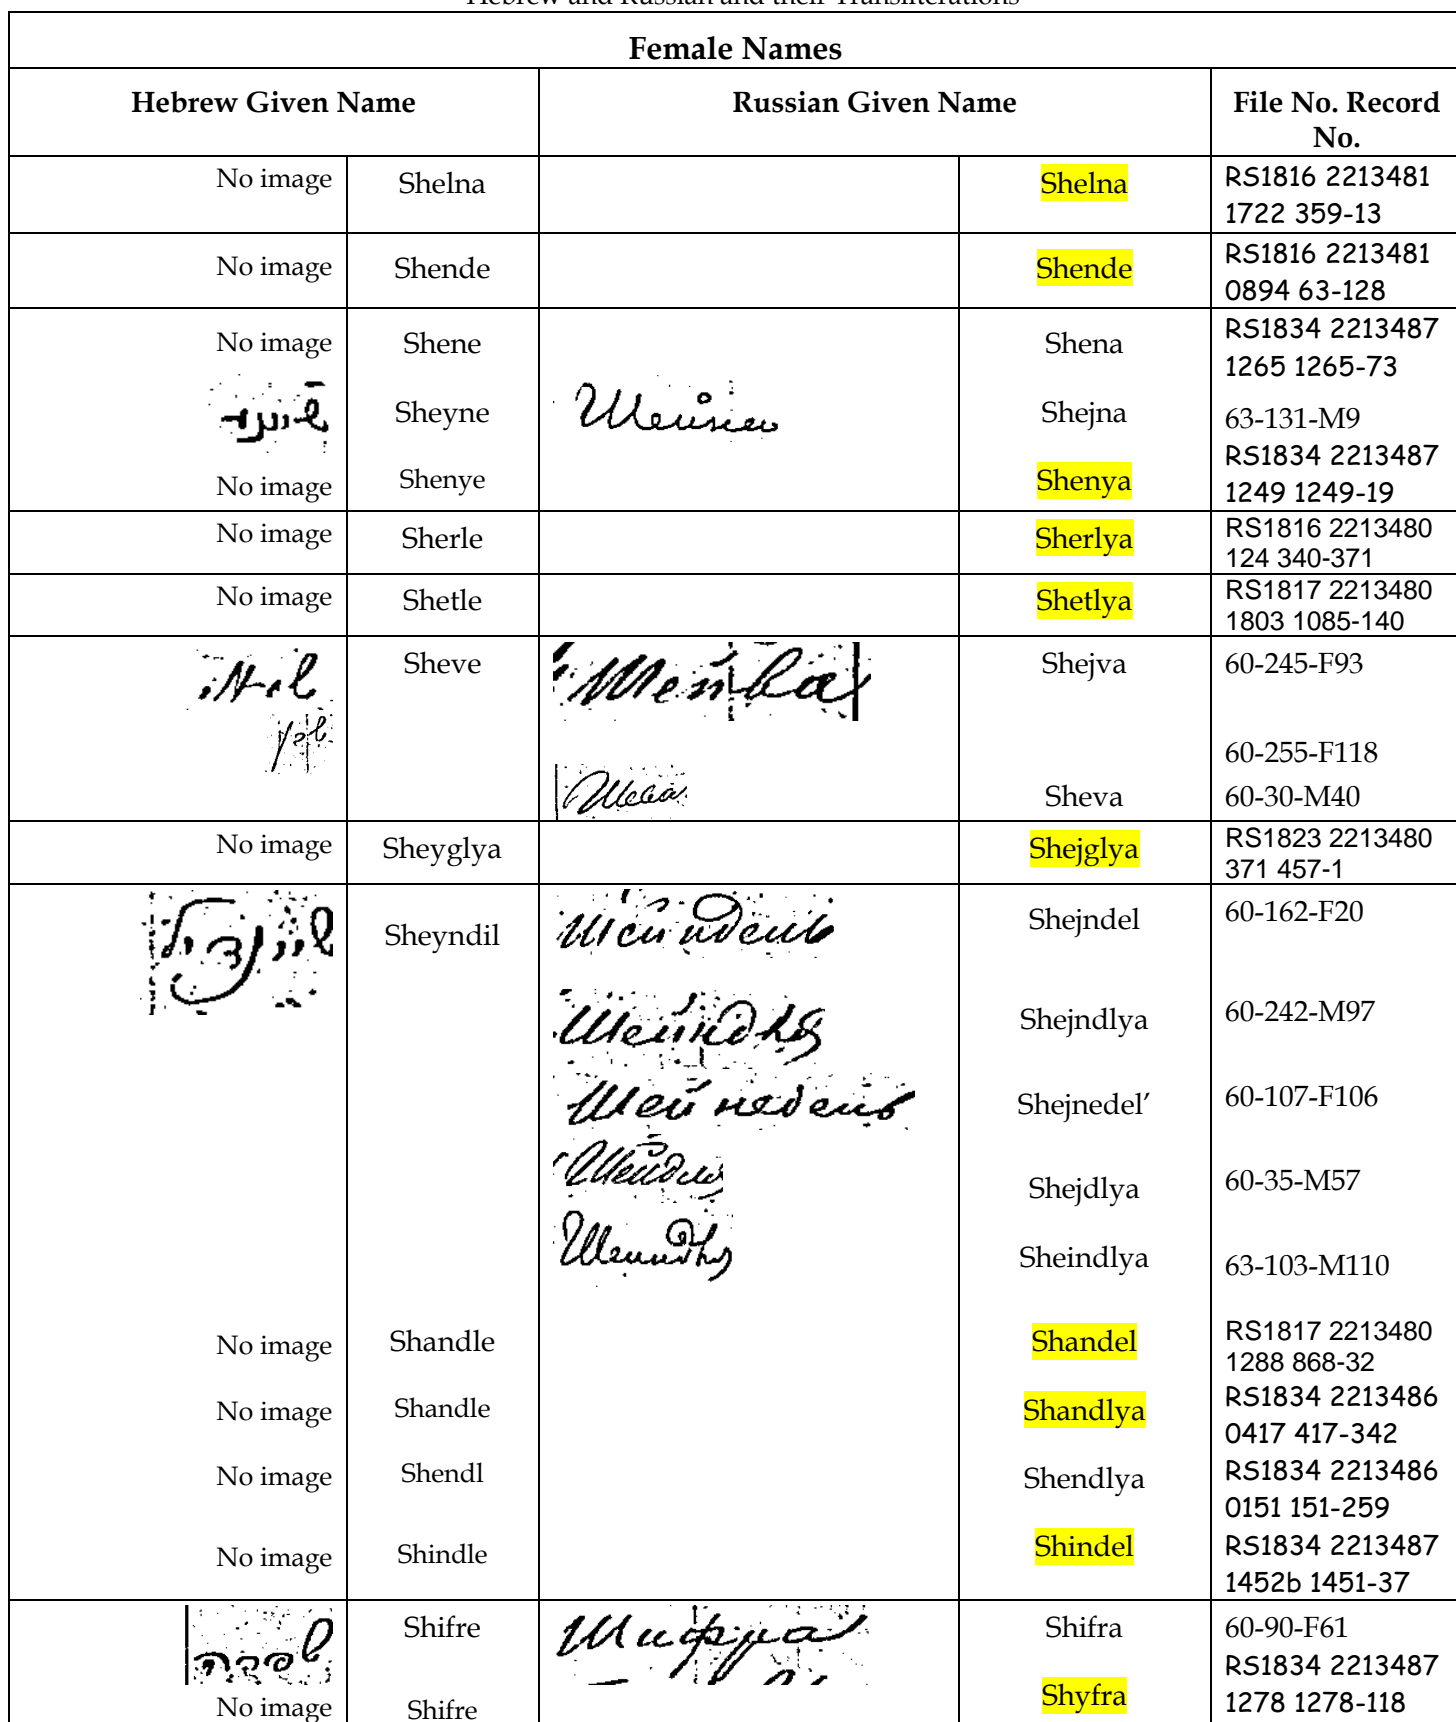 Hebrew and Russian and their Transliterations
Female Names
Hebrew Given Name Russian Given Name File No. Record No.
No image Shelna Shelna RS1816 2213481
1722 359-13
No image Shende Shende RS1816 2213481
0894 63-128
No image Shene Shena RS1834 2213487
1265 1265-73
Sheyne Шейна Shejna 63-131-M9
No image Shenye Shenya RS1834 2213487
1249 1249-19
No image Sherle Sherlya RS1816 2213480
124 340-371
No image Shetle Shetlya RS1817 2213480
1803 1085-140
Sheve Шейва Shejva 60-245-F93
60-255-F118
Шева Sheva 60-30-M40
No image Sheyglya Shejglya RS1823 2213480
371 457-1
שיינדיל Sheyndil Шейндель Shejndel 60-162-F20
Шейндля Shejndlya 60-242-M97
Шейнедель Shejnedel’ 60-107-F106
Шейдля Shejdlya 60-35-M57
Шеиндля Sheindlya 63-103-M110
No image Shandle Shandel RS1817 2213480
1288 868-32
No image Shandle Shandlya RS1834 2213486
0417 417-342
No image Shendl Shendlya RS1834 2213486
0151 151-259
No image Shindle Shindel RS1834 2213487
1452b 1451-37
שפרה Shifre Шифра Shifra 60-90-F61
No image Shifre Shyfra RS1834 2213487
1278 1278-118